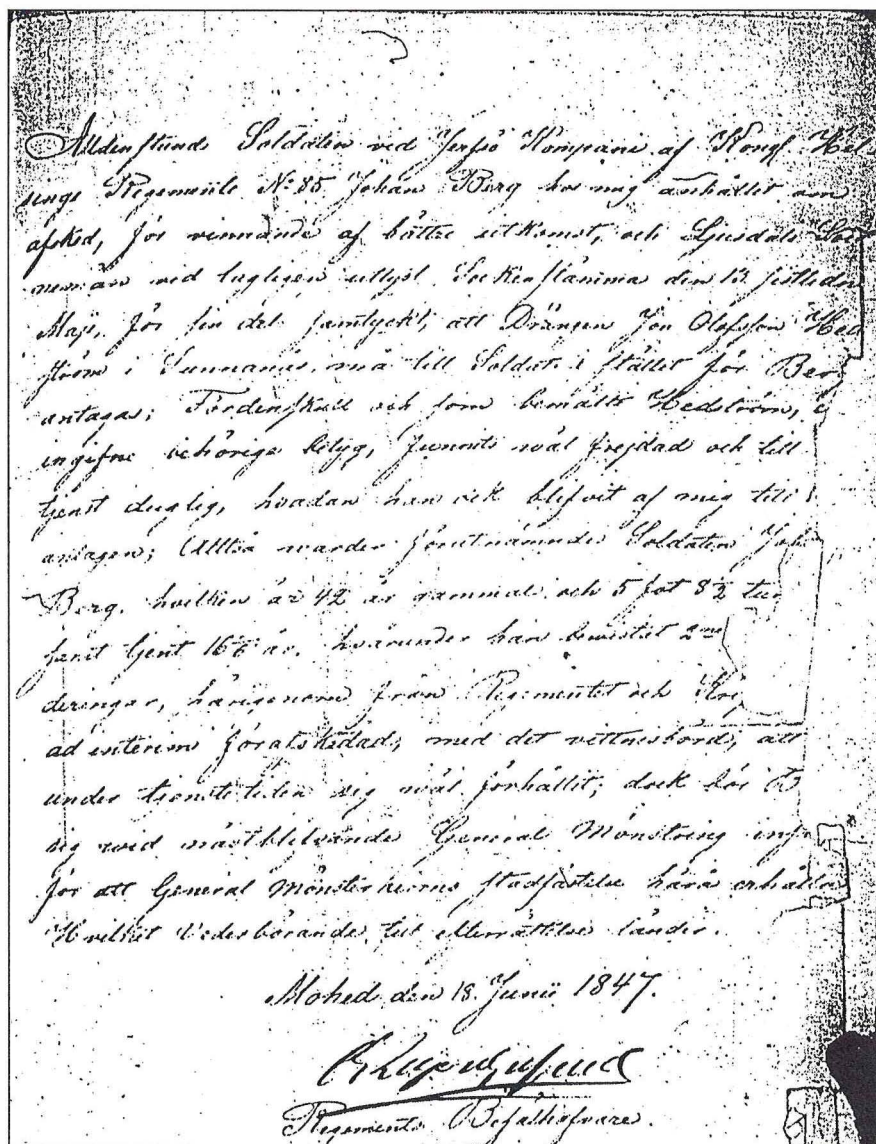 Alldenstund Soldaten vid Jerfsö Kompani af Kongl. Hel-
singe Regemente No 85 Johan Berg hos mig anhållit om
afsked, för vinnande af bättre utkomst, och Ljusdals Sock
nemän vid lagligen utlyst Sockenstämma den 13 sistledne
Maji, för sin del samtyckt, att Drängen Jon Olofsson Hed
ström i Sunnanås, må till Soldat i stället för Berg
antagas; Fördenskull och som bemälte Hedström,
ingifne behörige betyg, funnits wäl frejdad och till
tjenst duglig, hvadan han ock blifvit af mig till
antagen; Alltså warder förutnämnde Soldaten Joh
Berg, hvilken är 42 år gammal och 5 fot 8½ tum
samt tjent 16 år, hvarunder han bewistat 2ne
deringar, härigenom från Regementet och Krig
ad interim förafskedad, med det vittnesbörd, att
under tjenstetiden sig wäl förhållit; dock bör B
sig wid nästblifvande General Mönstring infi
för att General Mönsterherrns stadfästelse härå erhålla
Hvilket Vederbörande till efterrättelse länder.
Mohed den 18 Junii 1847.
Regements Befälhafvare.